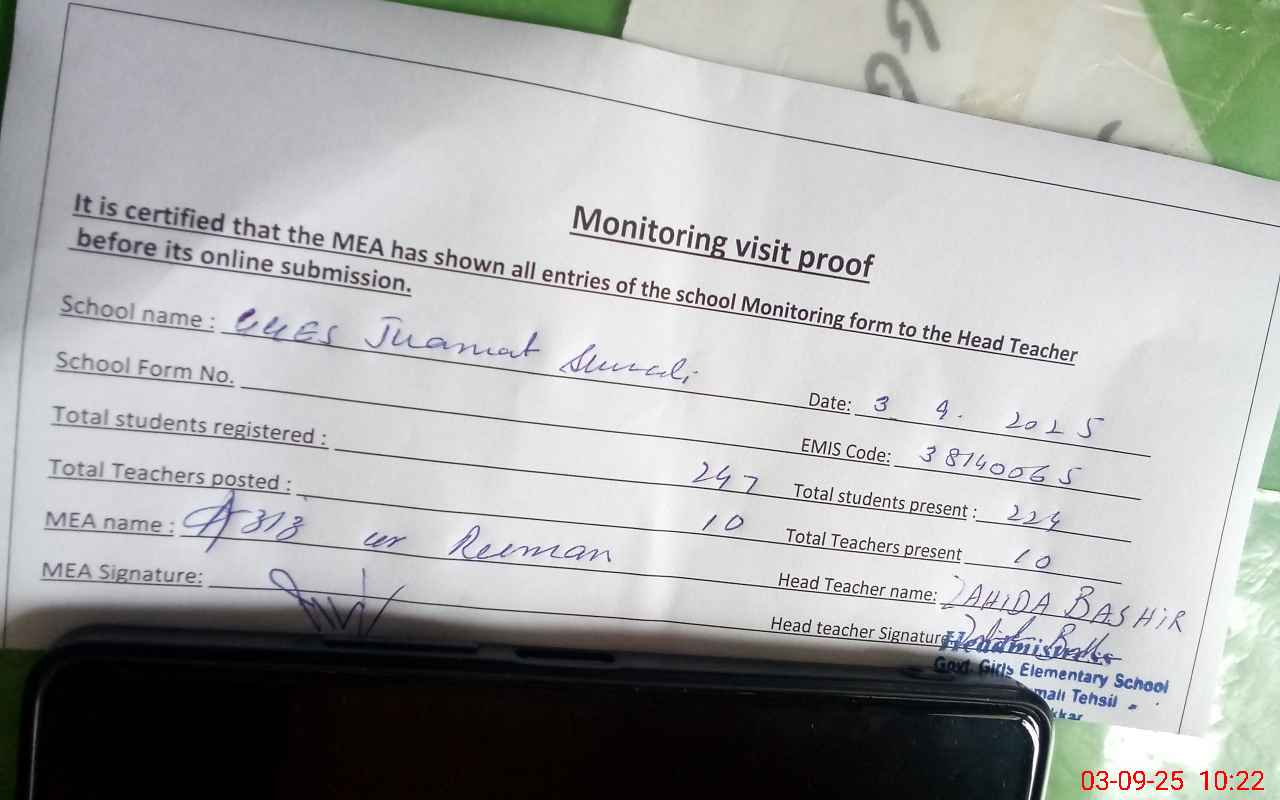 Monitoring visit proof
It is certified that the MEA has shown all entries of the school Monitoring form to the Head Teacher
before its online submission.
School name : GGES Juamat
Date: 3 9. 2025
School Form No.
EMIS Code: 38140065
Total students registered : 247
Total students present : 224
Total Teachers posted : 10
Total Teachers present 10
MEA name : ur Reeman
Head Teacher name: ZAHIDA BASHIR
MEA Signature:
Head teacher Signature
Headmistress
Govt. Girls Elementary School
mali Tehsil
kkar
GG
03-09-25 10:22